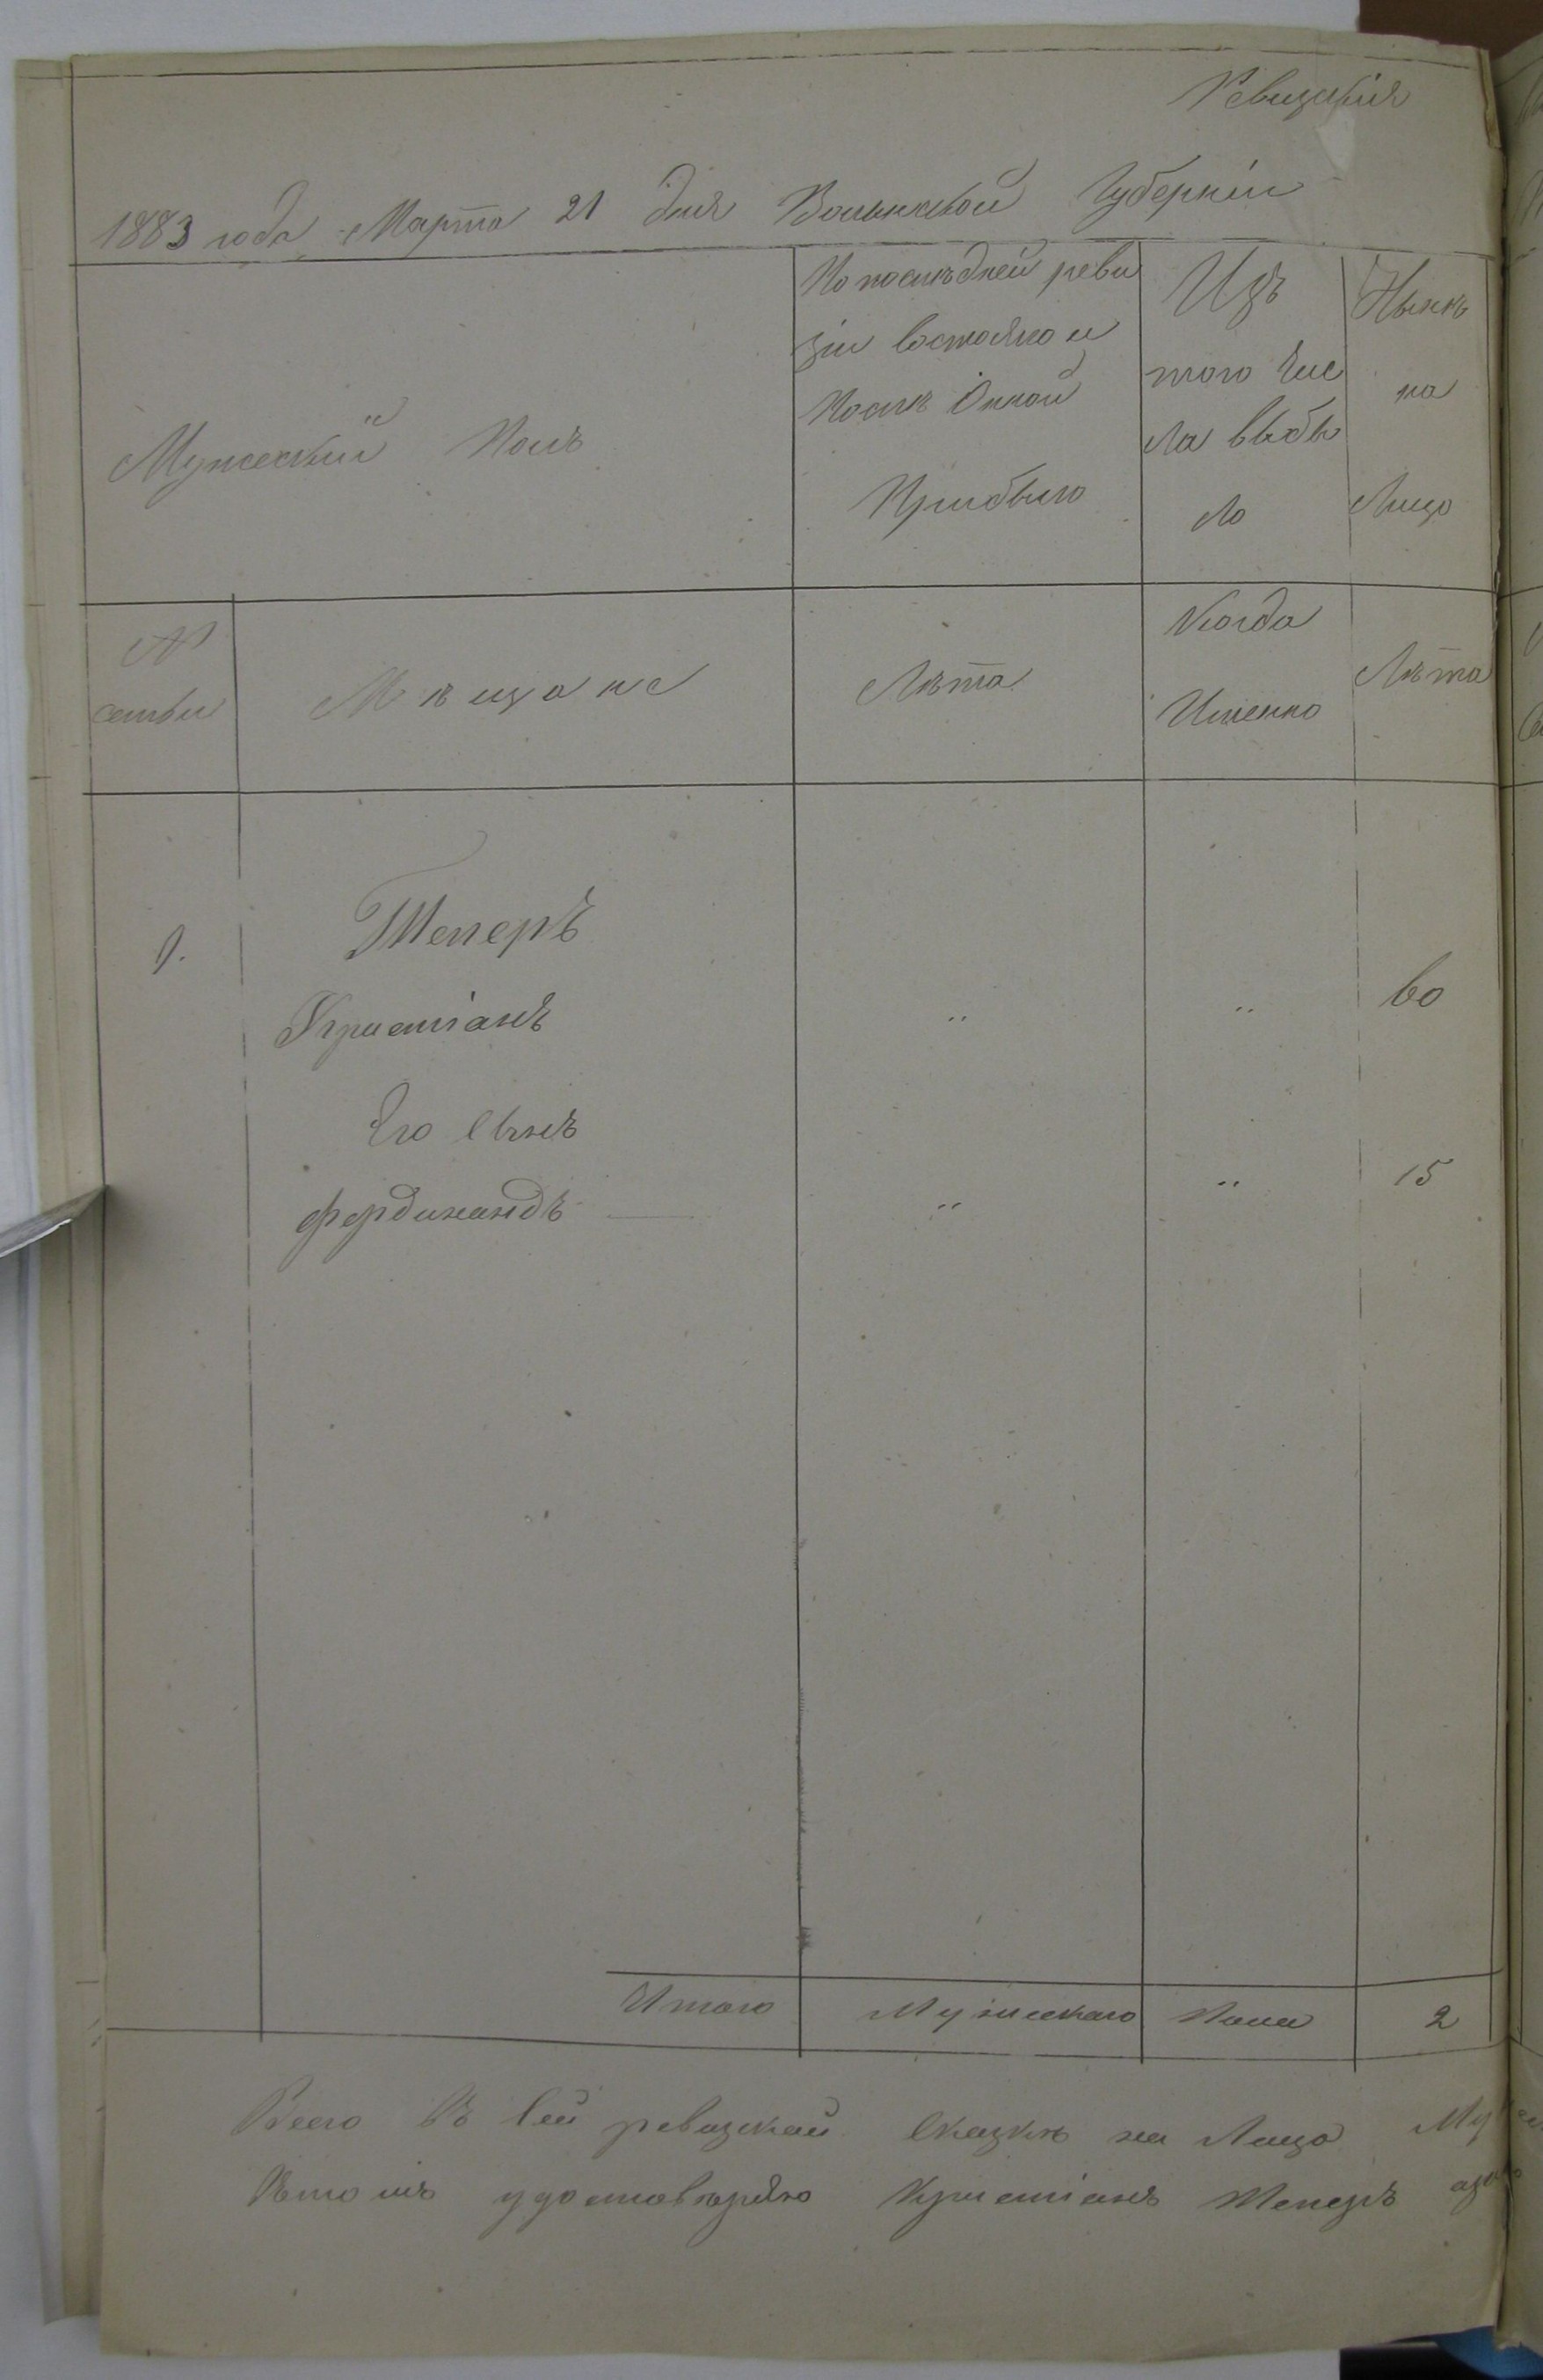 Ревизскія
1883 года Марта 21 дня Волынской Губерніи
Мужескій Полъ
По послѣдней реви
зіи Состояло и
Послѣ Оной
Прибыло
Изъ
того Чис
ла выбы
ло
Нынѣ
на
Лицо
№
семьи
Мѣщане
Лѣта
Когда
Именно
Лѣта
1.
Тепперъ
Христіанъ
"
"
60
Его Сынъ
Фердинандъ
"
"
15
Итого
Мужескаго
Пола
2
Всего Въ Сей ревизской Сказкѣ на Лицо
Въ томъ удостовѣряю Христіанъ